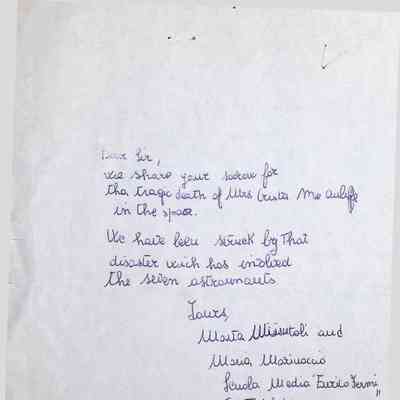 Dear Sir,
we share your sorrow for
the tragic death of Mrs Crista Mc Auliffe
in the space.
We have been struck by That
disaster wich has involved
the seven astronauts
Yours,
Marta and
Maria Marinaccio
Scuola Media "Enrico Fermi"